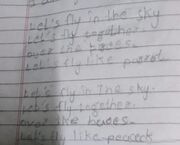 Let's fly in the sky
Let's fly together.
over the trees.
Let's fly like
Let's fly in the sky.
Let's fly together.
over the trees.
Let's fly like peacock